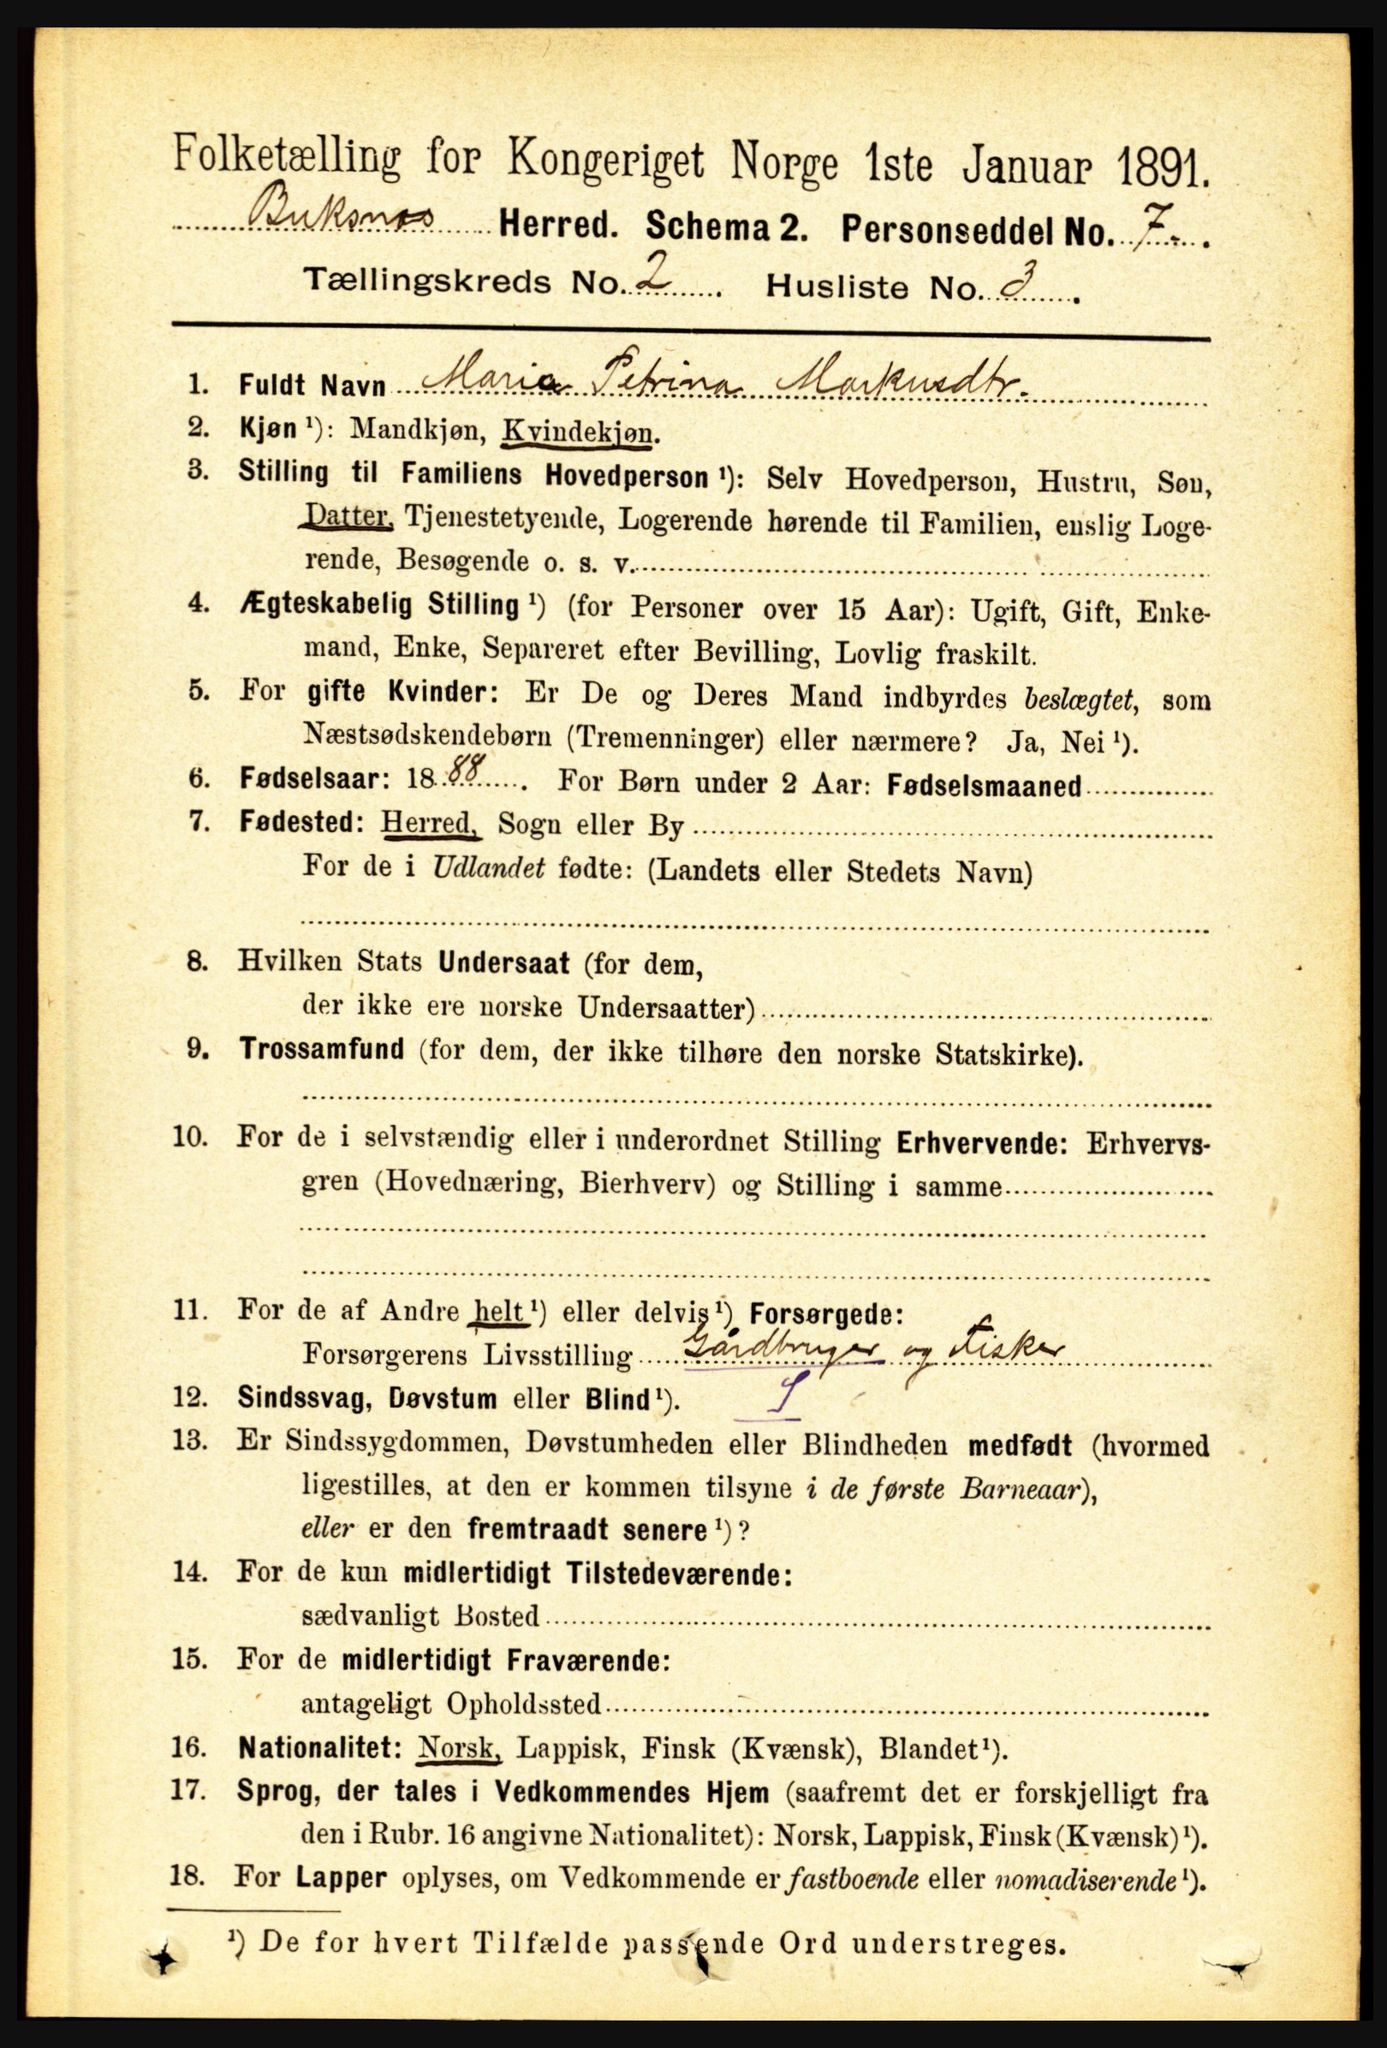 Folketælling for Kongeriget Norge 1ste Januar 1891.
Buksnes Herred. Schema 2. Personseddel No. 7.
Tællingskreds No. 2. Husliste No. 3.
1. Fuldt Navn Maria Petrina Markusdtr.
2. Kjøn ¹): Mandkjøn, Kvindekjøn.
3. Stilling til Familiens Hovedperson ¹): Selv Hovedperson, Hustru, Søn,
Datter, Tjenestetyende, Logerende hørende til Familien, enslig Loge-
rende, Besøgende o. s. v.
4. Ægteskabelig Stilling ¹) (for Personer over 15 Aar): Ugift, Gift, Enke-
mand, Enke, Separeret efter Bevilling, Lovlig fraskilt.
5. For gifte Kvinder: Er De og Deres Mand indbyrdes beslægtet, som
Næstsødskendebørn (Tremenninger) eller nærmere? Ja, Nei ¹).
6. Fødselsaar: 1888. For Børn under 2 Aar: Fødselsmaaned
7. Fødested: Herred, Sogn eller By
For de i Udlandet fødte: (Landets eller Stedets Navn)
8. Hvilken Stats Undersaat (for dem,
der ikke ere norske Undersaatter)
9. Trossamfund (for dem, der ikke tilhøre den norske Statskirke).
10. For de i selvstændig eller i underordnet Stilling Erhvervende: Erhvervs-
gren (Hovednæring, Bierhverv) og Stilling i samme
11. For de af Andre helt ¹) eller delvis ¹) Forsørgede:
Forsørgerens Livsstilling Gårdbruger og Fisker
12. Sindssvag, Døvstum eller Blind ¹). S
13. Er Sindssygdommen, Døvstumheden eller Blindheden medfødt (hvormed
ligestilles, at den er kommen tilsyne i de første Barneaar),
eller er den fremtraadt senere ¹)?
14. For de kun midlertidigt Tilstedeværende:
sædvanligt Bosted
15. For de midlertidigt Fraværende:
antageligt Opholdssted
16. Nationalitet: Norsk, Lappisk, Finsk (Kvænsk), Blandet ¹).
17. Sprog, der tales i Vedkommendes Hjem (saafremt det er forskjelligt fra
den i Rubr. 16 angivne Nationalitet): Norsk, Lappisk, Finsk (Kvænsk) ¹).
18. For Lapper oplyses, om Vedkommende er fastboende eller nomadiserende ¹).
¹) De for hvert Tilfælde passende Ord understreges.